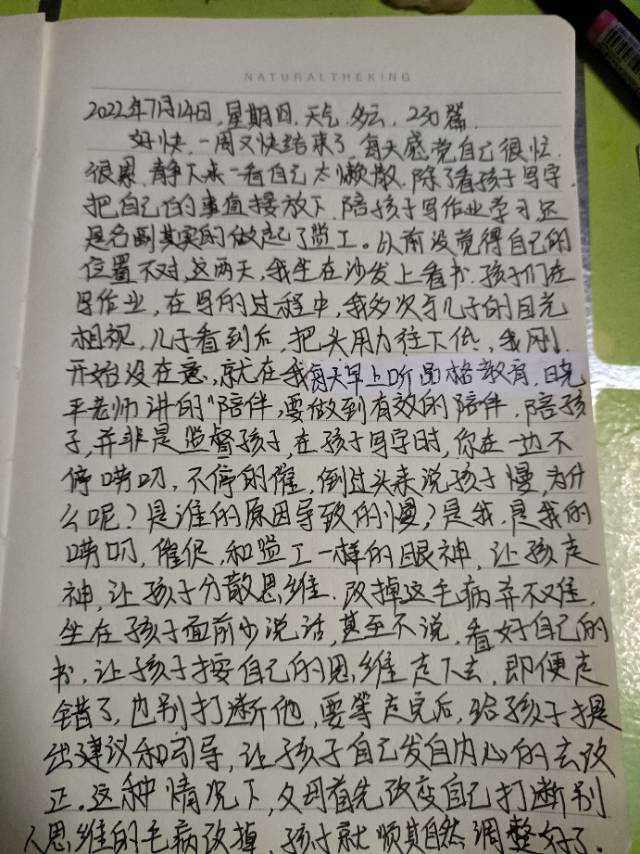 NATURALTHEKING
2022年7月14日,星期日,天气,多云,230篇.
好快,一周又快结束了,每天感觉自己很忙.
很累,静下来一看自己太懒散,除了看孩子写字
把自己的事直接放下,陪孩子写作业学习还
是名副其实的做起了监工。以前没觉得自己的
位置不对,这两天,我坐在沙发上看书,孩子们在
写作业,在写的过程中,我多次与儿子的目光
相视,儿子看到后,把头用力往下低,我刚
开始没在意,就在我每天早上听品格教育,晓
平老师讲的"陪伴,要做到有效的陪伴,陪孩
子,并非是监督孩子,在孩子写字时,你在一边不
停唠叨,不停的催,倒过头来说孩子慢,为什
么呢?是谁的原因导致的慢?是我,是我的
唠叨,催促,和监工一样的眼神,让孩走
神,让孩子分散思维.改掉这毛病并不难,
坐在孩子面前少说话,甚至不说,看好自己的
书,让孩子按自己的思维走下去,即便走
错了,也别打断他,要等走完后,给孩子提
出建议和引导,让孩子自己发自内心的去改
正.这种情况下,父母首先改变自己打断别
人思维的毛病改掉,孩子就顺其自然调整好了.